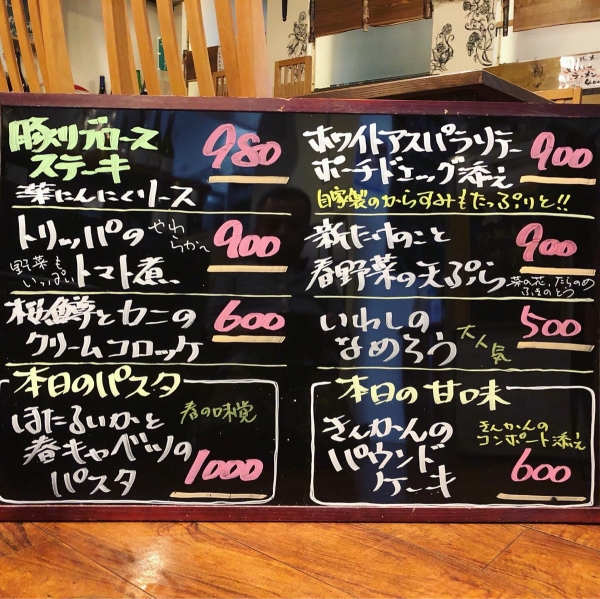 豚リブロース
ステーキ
980
葉にんにくソース
トリッパの
やわらか〜
900
野菜も
いっぱい
トマト煮
桜鱒とカニの
600
クリームコロッケ
本日のパスタ
ほたるいかと
春の味覚
春キャベツの
パスタ
1000
ホワイトアスパラソテー
900
ポーチドエッグ添え
自家製のからすみもたっぷりと!!
新たけのこと
900
春野菜の天ぷら
菜の花、たらのめ
ふきのとう
いわしの
500
なめろう
大人気
本日の甘味
きんかんの
パウンド
ケーキ
きんかんの
コンポート添え
600